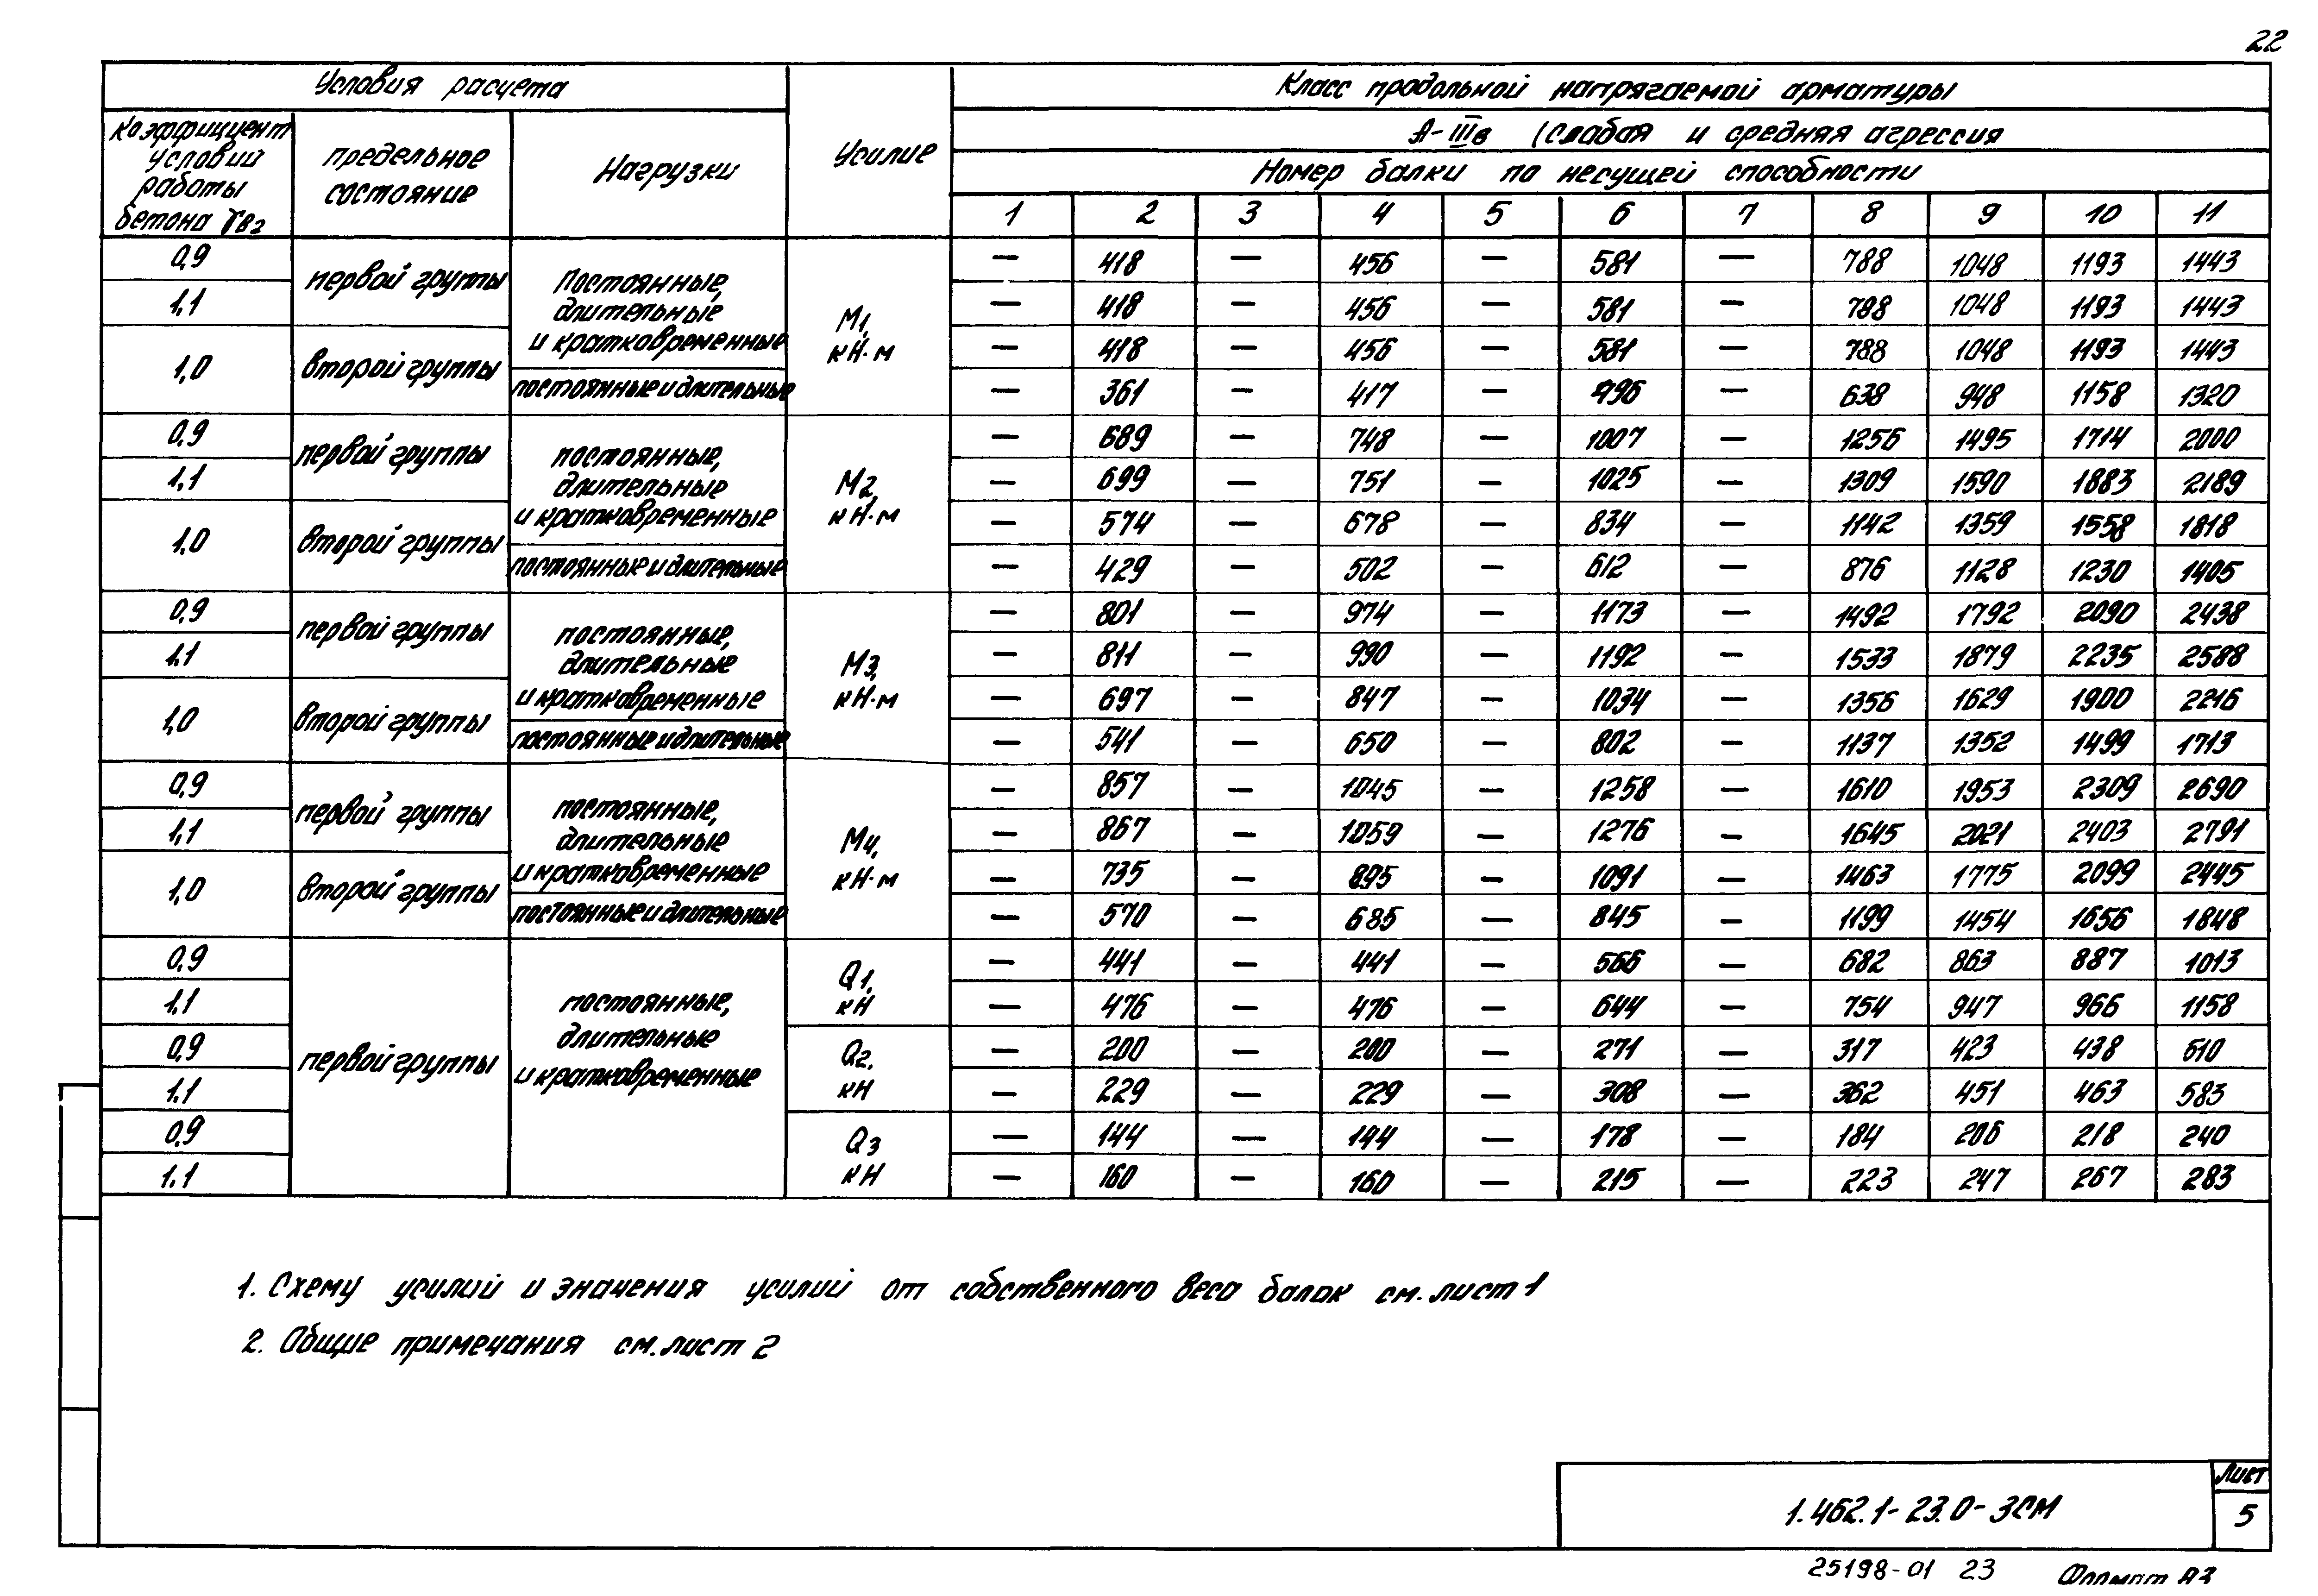 22
Условия расчета
Усилие
Класс продольной напрягаемой арматуры
Коэффициент условий работы бетона γв2
предельное состояние
Нагрузки
А-IIIв (слабая и средняя агрессия
Номер балки по несущей способности
1 2 3 4 5 6 7 8 9 10 11
0,9 первой группы постоянные, длительные и кратковременные М1, кН·м — 418 — 456 — 581 — 788 1048 1193 1443
1,1 — 418 — 456 — 581 — 788 1048 1193 1443
1,0 второй группы — 418 — 456 — 581 — 788 1048 1193 1443
постоянные и длительные — 361 — 417 — 496 — 638 948 1158 1320
0,9 первой группы постоянные, длительные и кратковременные М2, кН·м — 689 — 748 — 1007 — 1256 1495 1714 2000
1,1 — 699 — 751 — 1025 — 1309 1590 1883 2189
1,0 второй группы — 574 — 678 — 834 — 1142 1359 1558 1818
постоянные и длительные — 429 — 502 — 612 — 876 1128 1230 1405
0,9 первой группы постоянные, длительные и кратковременные М3, кН·м — 801 — 974 — 1173 — 1492 1792 2090 2438
1,1 — 811 — 990 — 1192 — 1533 1879 2235 2588
1,0 второй группы — 697 — 847 — 1034 — 1356 1629 1900 2216
постоянные и длительные — 541 — 650 — 802 — 1137 1352 1499 1713
0,9 первой группы постоянные, длительные и кратковременные М4, кН·м — 857 — 1045 — 1258 — 1610 1953 2309 2690
1,1 — 867 — 1059 — 1276 — 1645 2021 2403 2791
1,0 второй группы — 735 — 895 — 1091 — 1463 1775 2099 2445
постоянные и длительные — 570 — 685 — 845 — 1199 1454 1656 1848
0,9 первой группы постоянные, длительные и кратковременные Q1, кН — 441 — 441 — 566 — 682 863 887 1013
1,1 — 476 — 476 — 644 — 754 947 966 1158
0,9 Q2, кН — 200 — 200 — 271 — 317 423 438 510
1,1 — 229 — 229 — 308 — 362 451 463 583
0,9 Q3 кН — 144 — 144 — 178 — 184 206 218 240
1,1 — 160 — 160 — 215 — 223 247 267 283
1. Схему усилий и значения усилий от собственного веса балок см. лист 1
2. Общие примечания см. лист 2
1.462.1-23.0-3СМ
Лист
5
25198-01 23 Формат А3